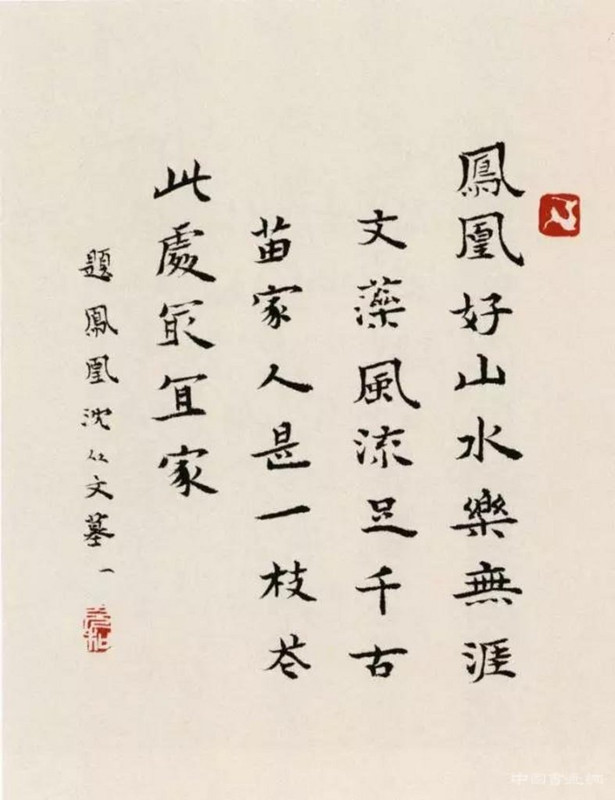 鳳凰好山水樂無涯
文藻風流足千古
苗家人是一枝花
此處冣冝家
題鳳凰沈从文墓一